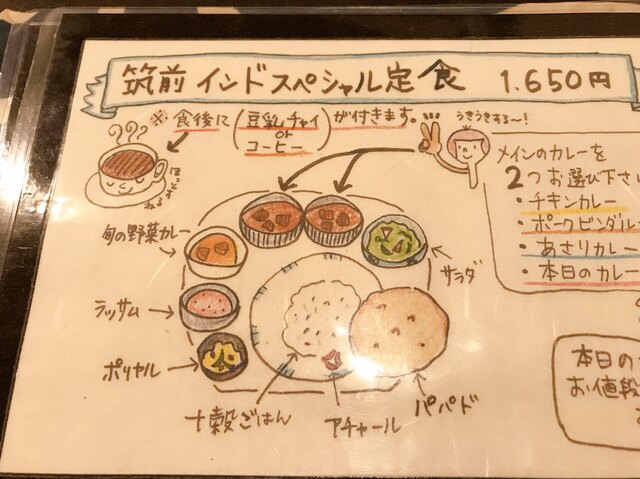 筑前 インドスペシャル定食 1.650円
※ 食後に(豆乳チャイ or コーヒー)が付きます。
うきうきする〜!
メインのカレーを
2つお選び下さい
・チキンカレー
・ポークビンダルー
・あさりカレー
・本日のカレー
旬の野菜カレー
サラダ
ラッサム
ポリヤル
十穀ごはん
アチャール
パパド
本日の
お値段